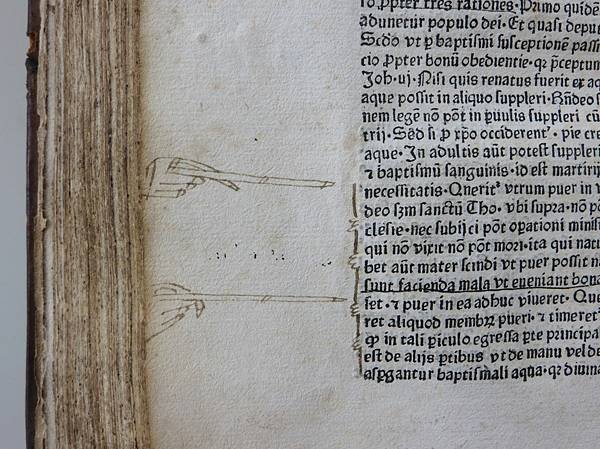 io ꝓpter tres rationes· Primo quidē
adunetur populo dei· Et quasi depu
Scḋo vt ꝑ baptismi susceptionē passi
cio ꝓpter bonū obedientie· qꝛ p̄ceptum
Joh·iij· Nisi quis renatus fuerit ex aq
aque possit in aliquo suppleri· Rn̄deo s
nem legē nō pōt in ꝑuulis suppleri cū
trij· Sed si ꝓ xp̄o occiderent᷑· pie cre
aque· In adultis aūt potest suppleri
⁊ baptismū sanguinis· id est martirij
necessitatis· Querit᷑ vtrum puer in v
deo sꝫm sanctū Tho· vbi supra· nō p
clesie· nec subijci pōt oꝑationi minis
qui nō vixit nō pōt mori· ita qui natu
bet aūt mater scindi vt puer possit n
sunt facienda mala vt eueniant bona
set· ⁊ puer in ea adhuc viueret· Que
ret aliquod membꝝ pueri· ⁊ timeret
ꝙ in tali ꝑiculo egressa ꝑte principa
est de alijs ꝑtibus vt de manu vel de
aspgantur baptismali aqua· qꝛ diuina